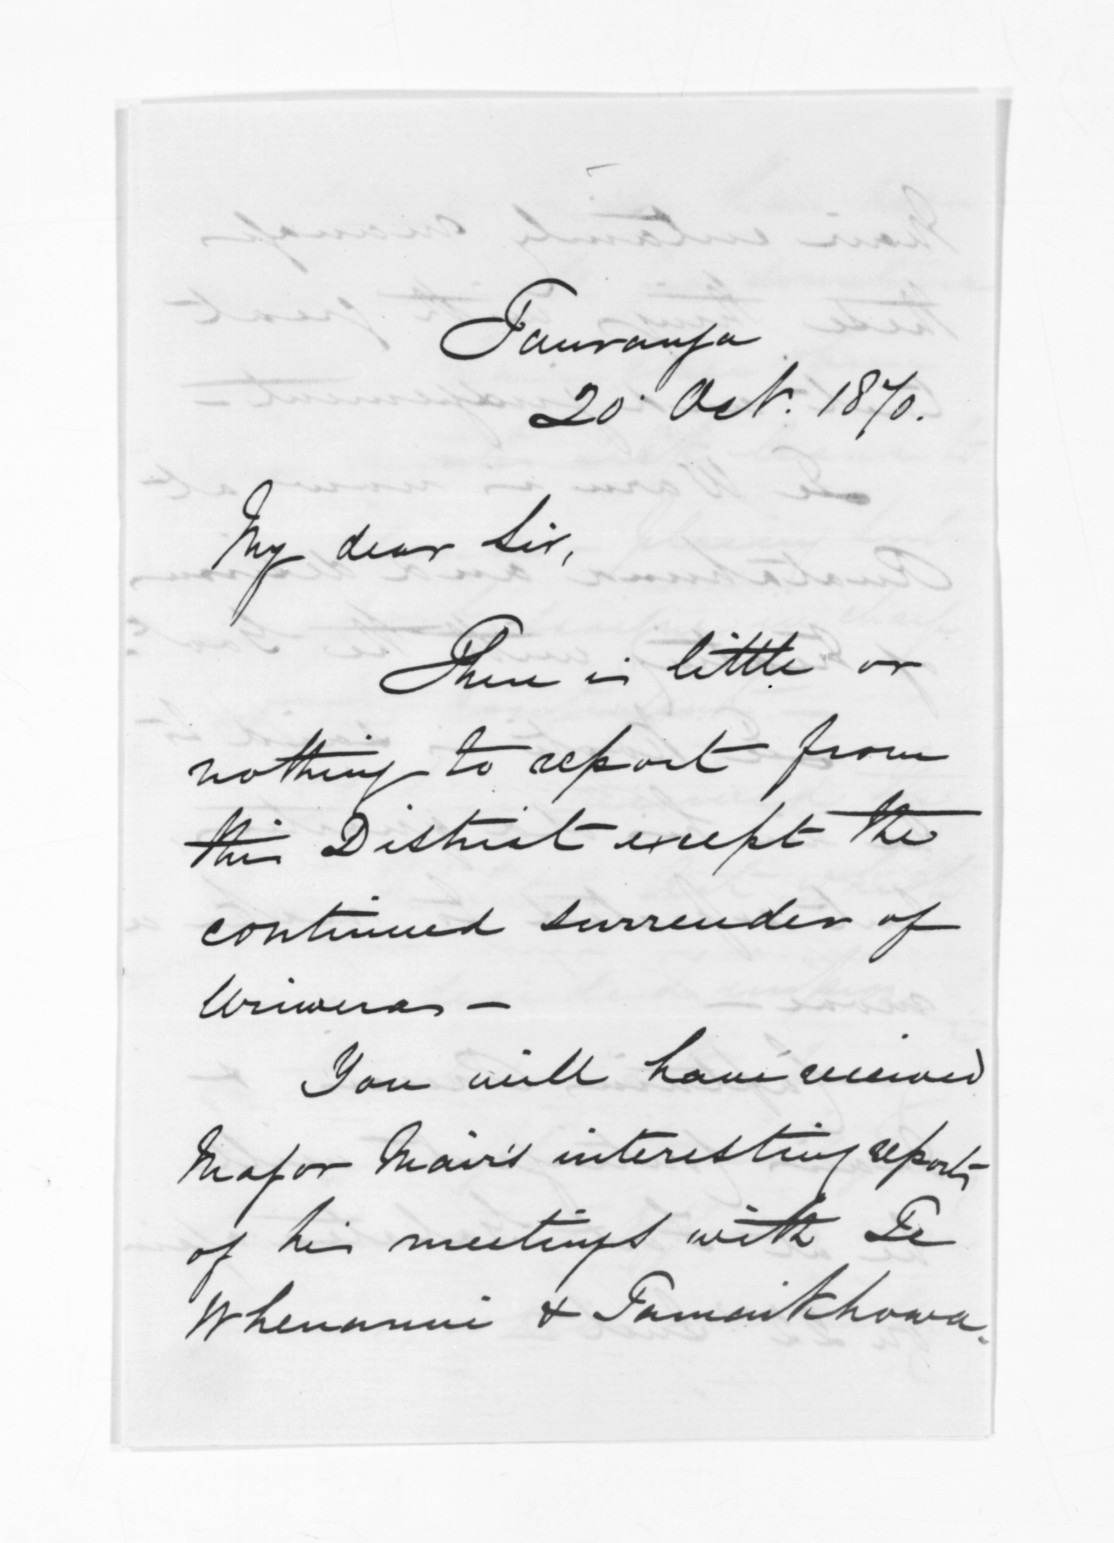 Tauranga
20 Oct. 1870.
My dear Sir,
There is little or
nothing to report from
this District except the
continued surrender of
Uriweras —
You will have received
Major Mair's interesting reports
of his meetings with Te
Whenanui & Tamaikhowa.